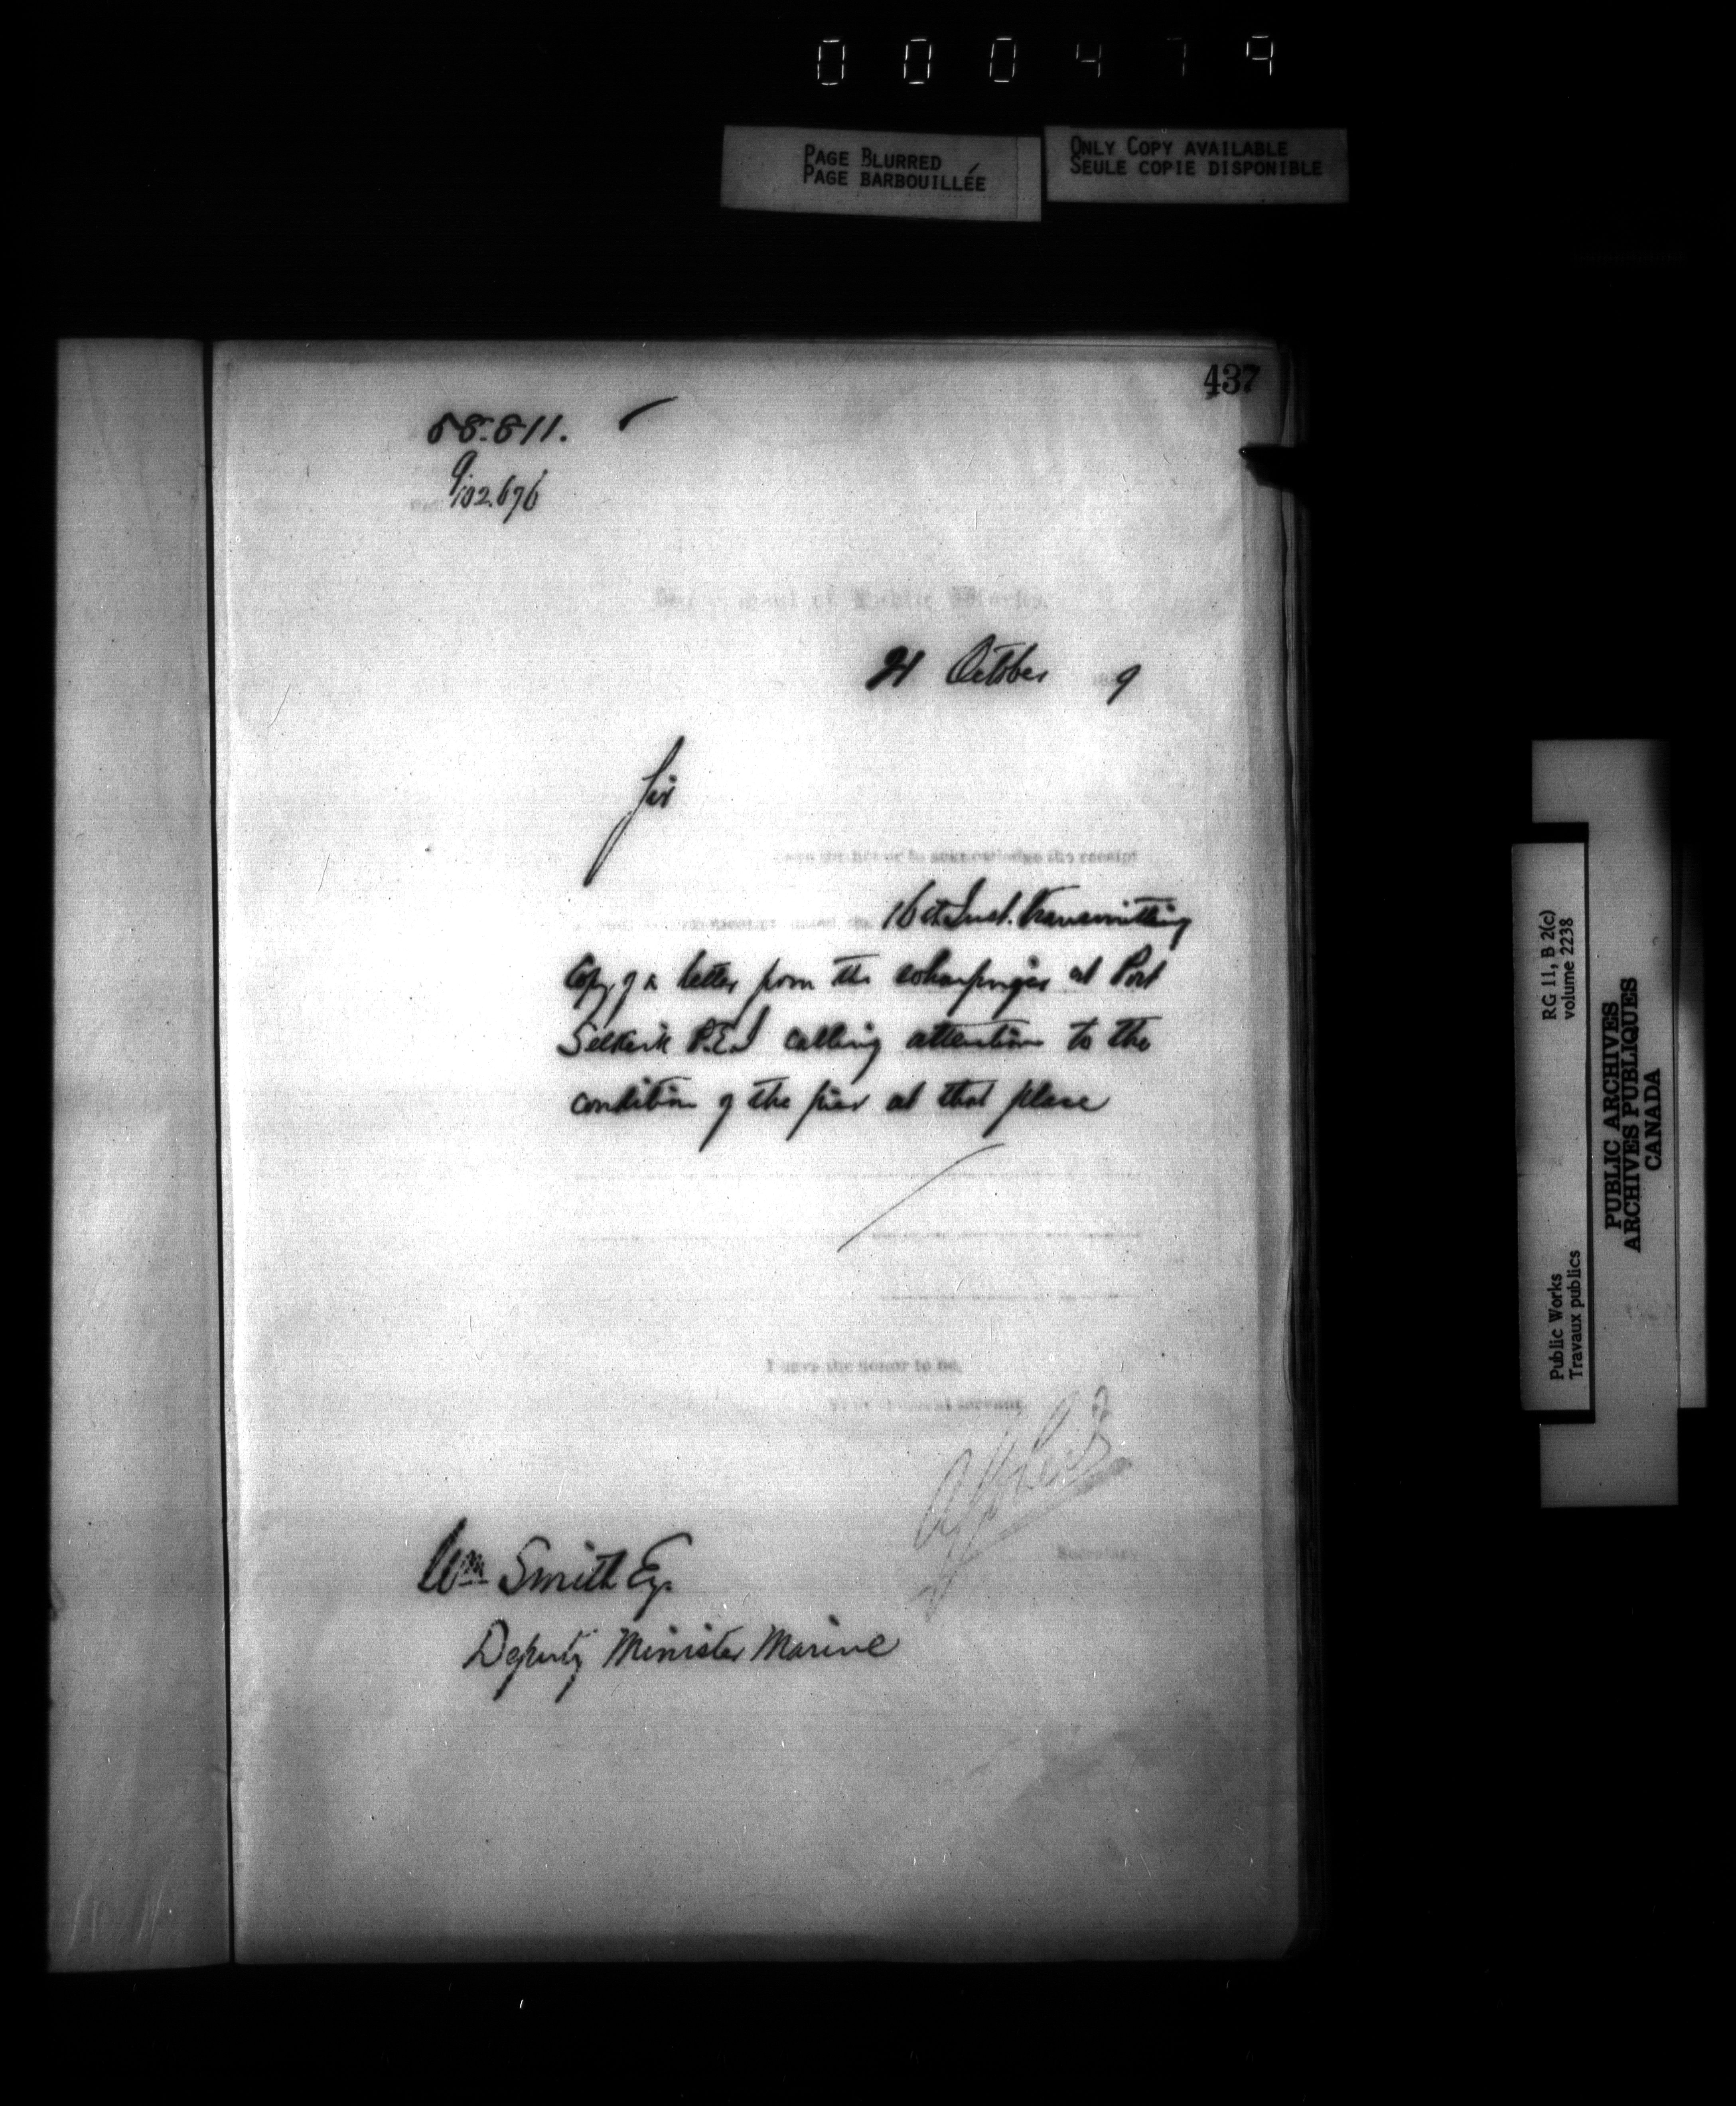 000479
PAGE BLURRED
PAGE BARBOUILLÉE
ONLY COPY AVAILABLE
SEULE COPIE DISPONIBLE
437
58.811.
102.676
Department of Public Works.
21 October 9
Sir
have the honor to acknowledge the receipt
16th Inst. transmitting
Copy of a letter from the wharfinger at Port
Selkirk P.E.I calling attention to the
condition of the pier at that place
I have the honor to be,
servant
Secretary
Wm Smith Esq.
Deputy Minister Marine
RG 11, B 2(c)
volume 2238
Public Works
Travaux publics
PUBLIC ARCHIVES
ARCHIVES PUBLIQUES
CANADA